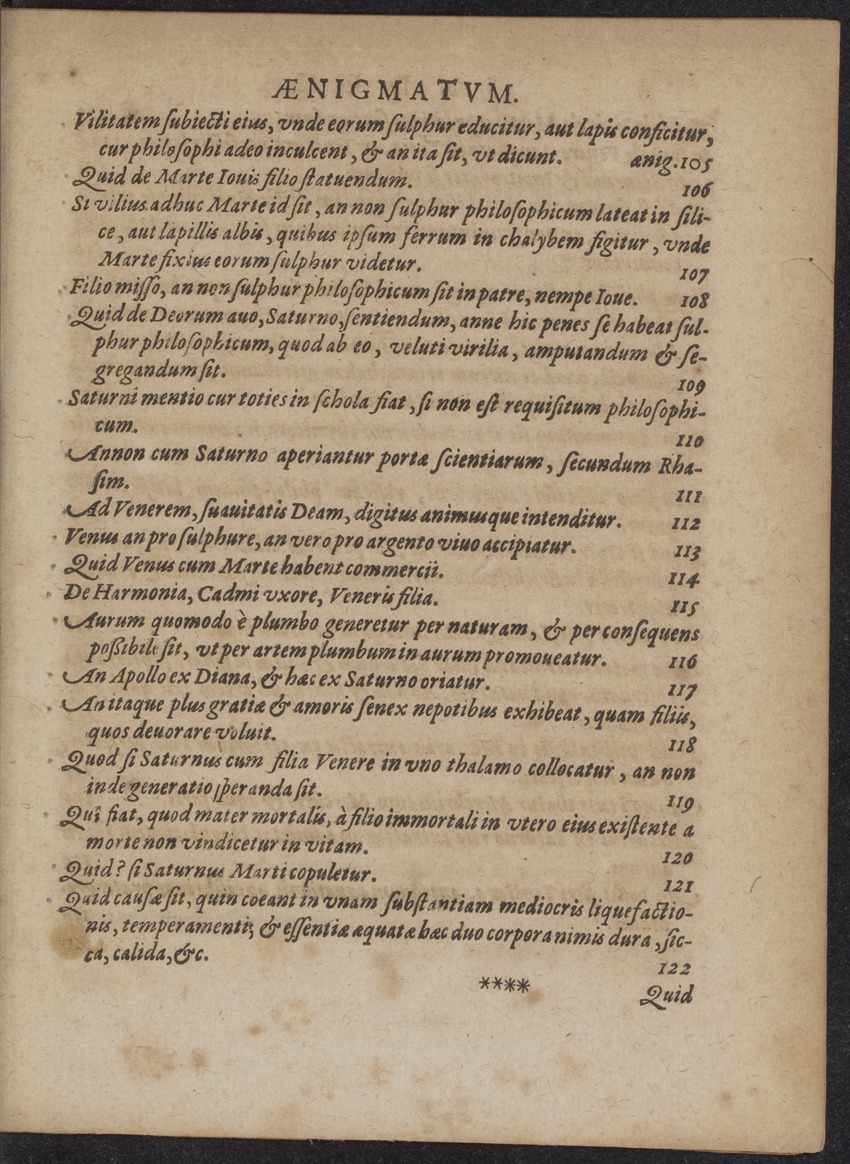 ÆNIGMATVM.
Vilitatem ſubiecti eius, vnde eorum ſulphur educitur, aut lapis conficitur,
cur philoſophi adeo inculcent, & an ita ſit, vt dicunt. ænig. 105
Quid de Marte Iouis filio ſtatuendum. 106
Si vilius adhuc Marte id ſit, an non ſulphur philoſophicum lateat in ſili-
ce, aut lapillis albis, quibus ipſum ferrum in chalybem figitur, vnde
Marte fixius eorum ſulphur videtur. 107
Filio miſſo, an non ſulphur philoſophicum ſit in patre, nempe Ioue. 108
Quid de Deorum auo, Saturno, ſentiendum, anne hic penes ſe habeat ſul-
phur philoſophicum, quod ab eo, veluti virilia, amputandum & ſe-
gregandum ſit. 109
Saturni mentio cur toties in ſchola fiat, ſi non eſt requiſitum philoſophi-
cum. 110
Annon cum Saturno aperiantur portæ ſcientiarum, ſecundum Rha-
ſim. 111
Ad Venerem, ſuauitatis Deam, digitus animusque intenditur. 112
Venus an pro ſulphure, an vero pro argento viuo accipiatur. 113
Quid Venus cum Marte habent commercii. 114
De Harmonia, Cadmi vxore, Veneris filia. 115
Aurum quomodo è plumbo generetur per naturam, & per conſequens
poßibile ſit, vt per artem plumbum in aurum promoueatur. 116
An Apollo ex Diana, & hæc ex Saturno oriatur. 117
An itaque plus gratiæ & amoris ſenex nepotibus exhibeat, quam filiis,
quos deuorare voluit. 118
Quod ſi Saturnus cum filia Venere in vno thalamo collocatur, an non
inde generatio ſperanda ſit. 119
Quî fiat, quod mater mortalis, à filio immortali in vtero eius exiſtente a
morte non vindicetur in vitam. 120
Quid? ſi Saturnus Marti copuletur. 121
Quid cauſæ ſit, quin coeant in vnam ſubſtantiam mediocris liquefactio-
nis, temperamenti; & eſſentiæ æquatæ hæc duo corpora nimis dura, ſic-
ca, calida, &c. 122
**** Quid